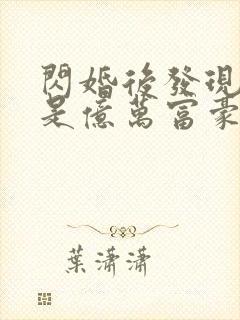 閃婚後發現
是億萬富豪
葉瀟瀟